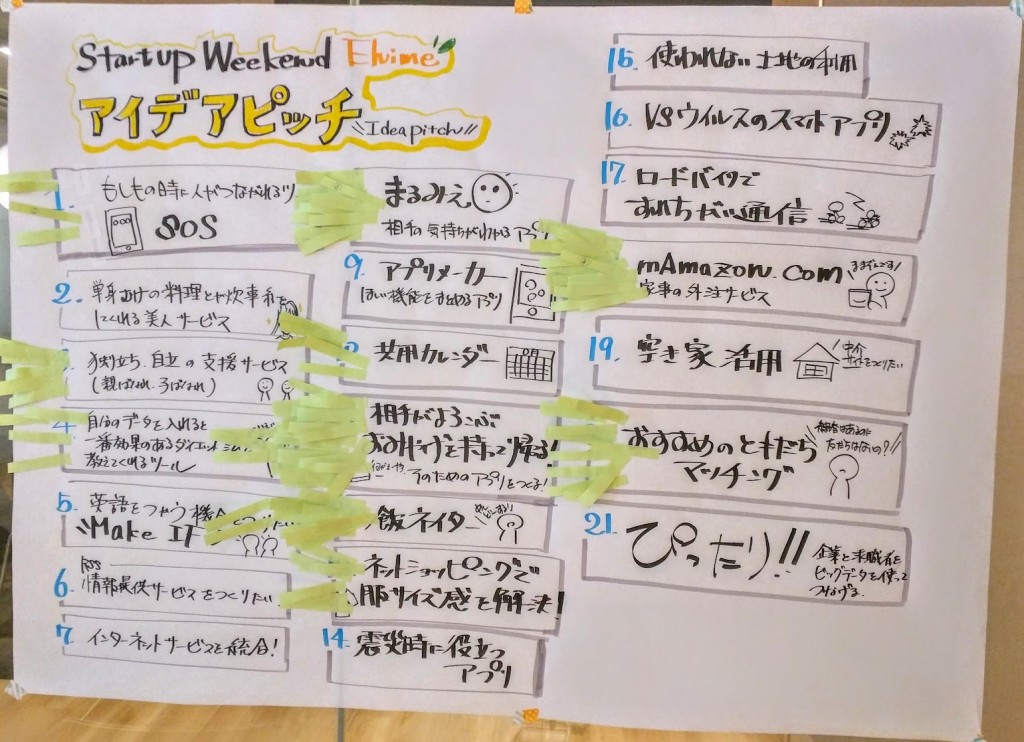 Startup Weekend Ehime
アイデアピッチ
Ideapitch
1.
もしもの時に人がつながれる
SOS
2.
単身むけの料理とか炊事
にくれる美人サービス
独り立ち、自立の支援サービス
(親ばなれ、子ばなれ)
4
自分のデータを入れると
一番効果のあるダイエット
教えてくれるツール
5.
英語をつかう機会
Make IT
6.
RSS
情報提供サービスをつくりたい
7.
インターネットサービスを統合!
まるみえ
相手の気持ちがわかるアプリ
9.
アプリメーカー
機能をまとめるアプリ
共用カレンダー
相手がよろこぶ
おみやげを持って帰る!
そのためのアプリをつくる!
飯ネイター
ネットショッピングで
服サイズ感を解決!
14.
震災時に役立つ
アプリ
15.
使われない土地の利用
16.
VSウイルスのスマホアプリ
17.
ロードバイクで
すれちがい通信
mAmazon.com
家事の外注サービス
19.
空き家活用
仲介
サイトをつくりたい
おすすめのともだち
マッチング
21.
ぴったり!!
企業と求職者を
ビッグデータを使って
つなげる